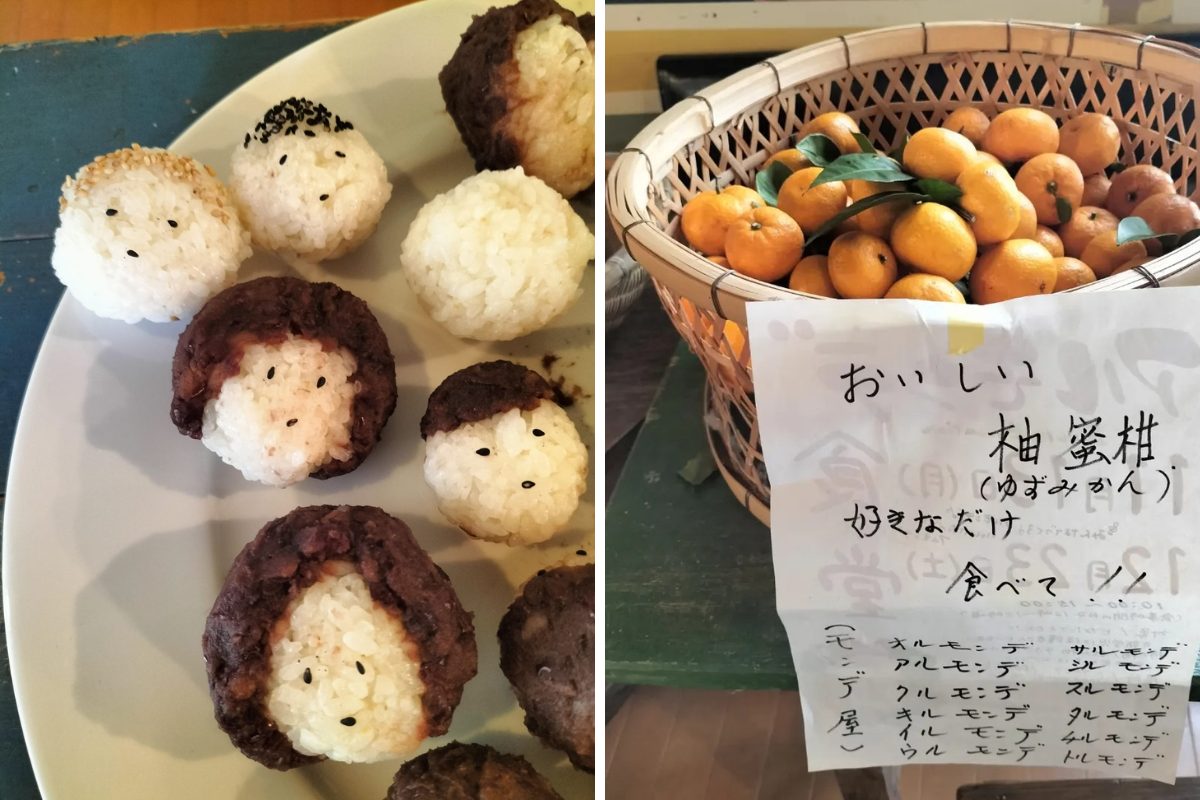 おいしい
柚蜜柑
(ゆずみかん)
好きなだけ
食べて!!
(モンデ屋)
オルモンデ
アルモンデ
クルモンデ
キルモンデ
イルモンデ
ウルモンデ
サルモンデ
シルモンデ
スルモンデ
タルモンデ
チルモンデ
トルモンデ
食堂
12月23日(土)
10:00~15:00